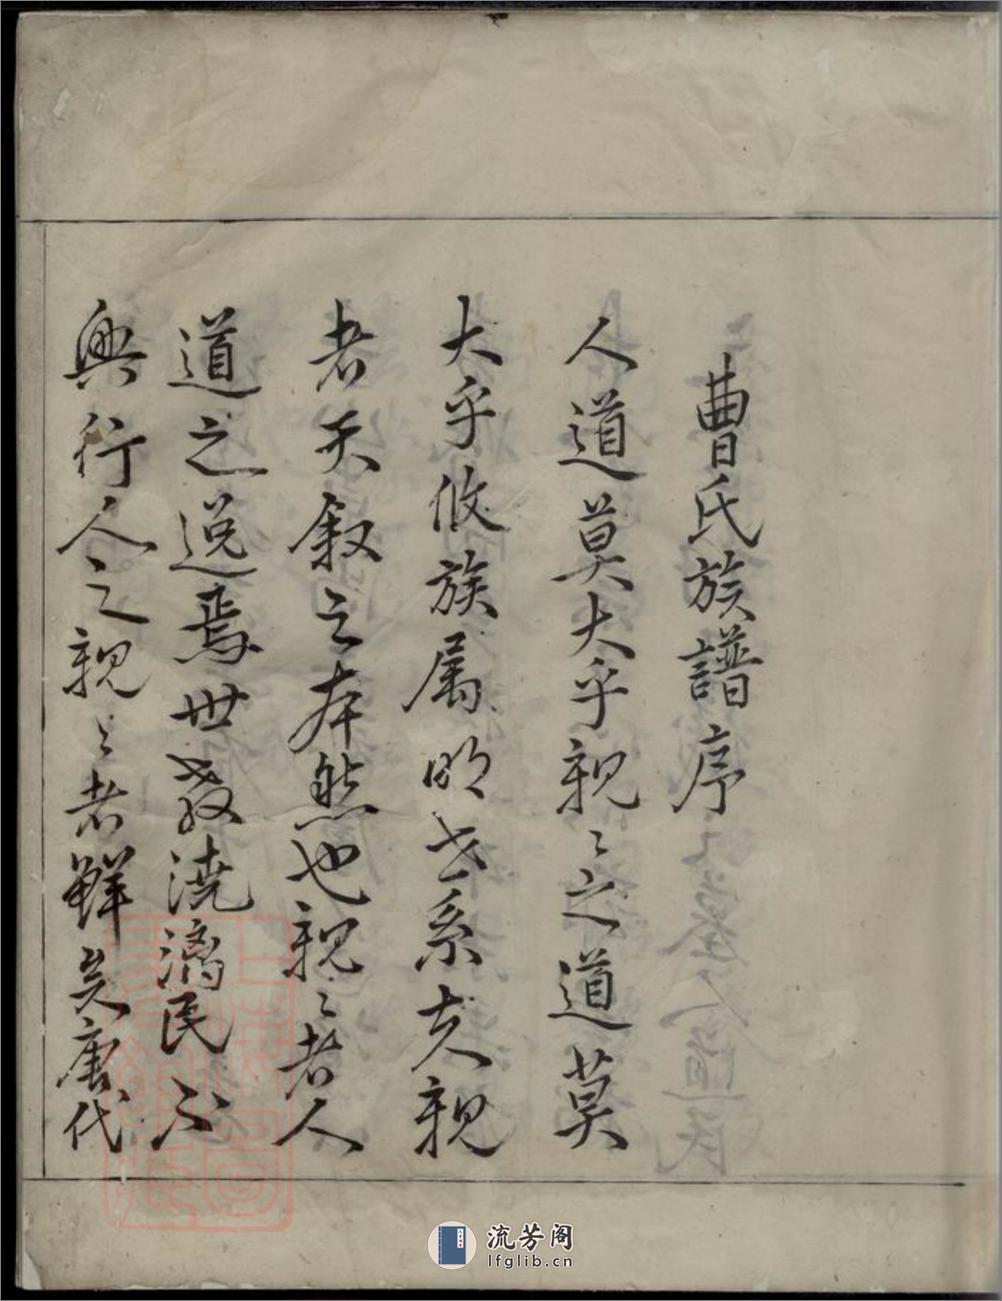 曹氏族譜序
人道莫大乎親〻之道莫
大乎攸族属明世系夫親
者天叙之本然也親〻者人
道之逆焉世教澆漓民不
興行人之親〻者鲜矣唐代
流芳阁
lfglib.cn